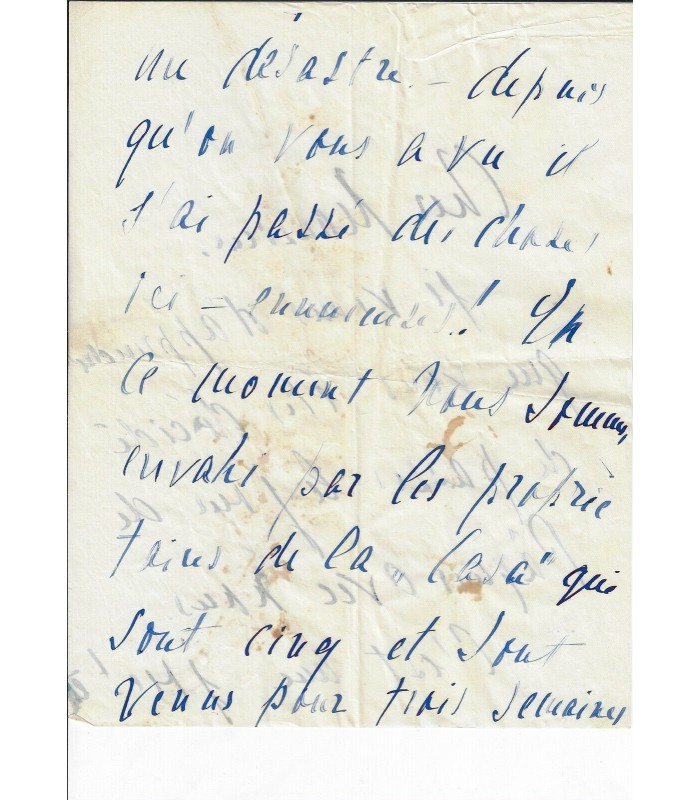 un désastre. – depuis
qu'on vous a vu il
s'ai passé des choses
ici – ennuieuses! En
ce moment nous sommes
envahi par les proprié
taires de la "Casa" qui
sont cinq et sont
venus pour trois semaines